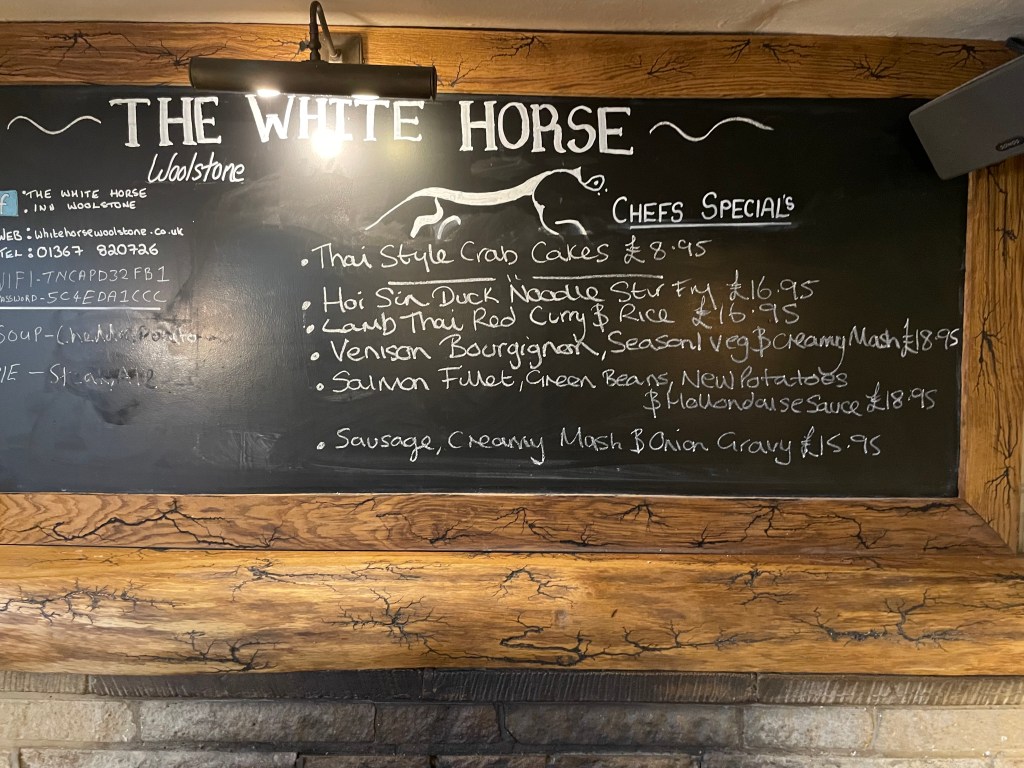 THE WHITE HORSE
Woolstone
f • THE WHITE HORSE
• INN WOOLSTONE
WEB: whitehorsewoolstone.co.uk
TEL: 01367 820726
WIFI-TNCAPD32FB1
PASSWORD-5C4EDA1CCC
SOUP-
PIE -
CHEFS SPECIAL'S
• Thai Style Crab Cakes £8.95
• Hoi Sin Duck Noodle Stir Fry £16.95
• Lamb Thai Red Curry & Rice £16.95
• Venison Bourgignon, Seasonl Veg & Creamy Mash £18.95
• Salmon Fillet, Green Beans, New Potatoes
& Hollondaise Sauce £18.95
• Sausage, Creamy Mash & Onion Gravy £15.95